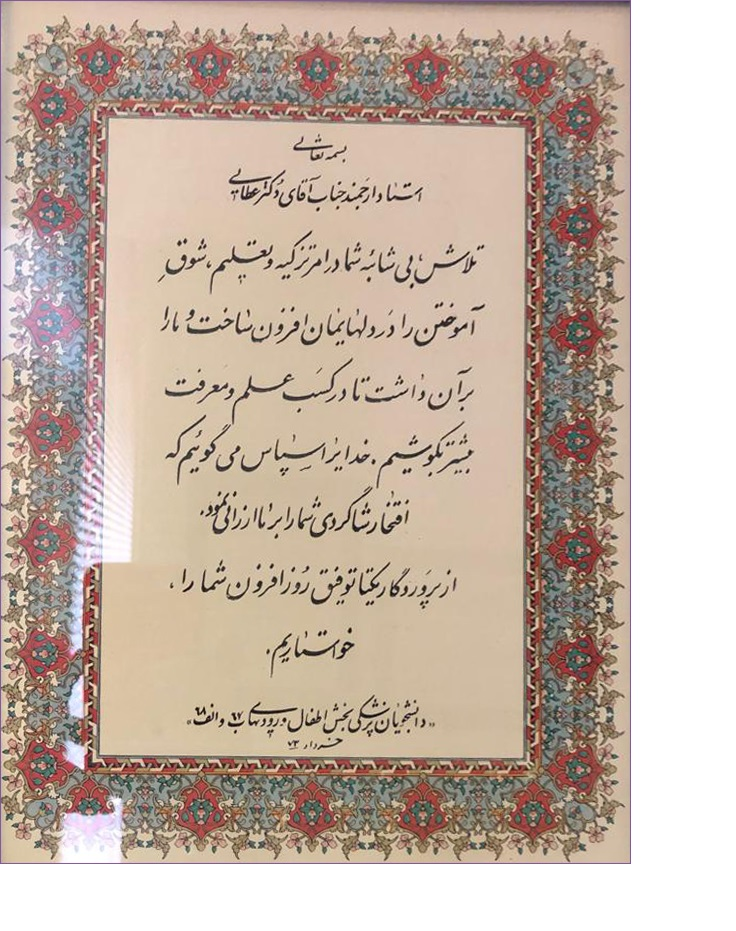 بسمه تعالی
استاد ارجمند جناب آقای دکتر عطایی
تلاش بی شائبه شما در امر تزکیه و تعلیم، شوقِ
آموختن را در دلهایمان افزون ساخت و ما را
بر آن داشت تا در کسب علم و معرفت
بیشتر بکوشیم. خدایرا سپاس می گوئیم که
افتخار شاگردی شما را بر ما ارزانی نمود.
از پروردگار یکتا توفیق روز افزون شما را،
خواستاریم.
«دانشجویان پزشکی بخش اطفال ورودیهای ب ۶۷ و الف ۶۸»
خرداد ۷۳